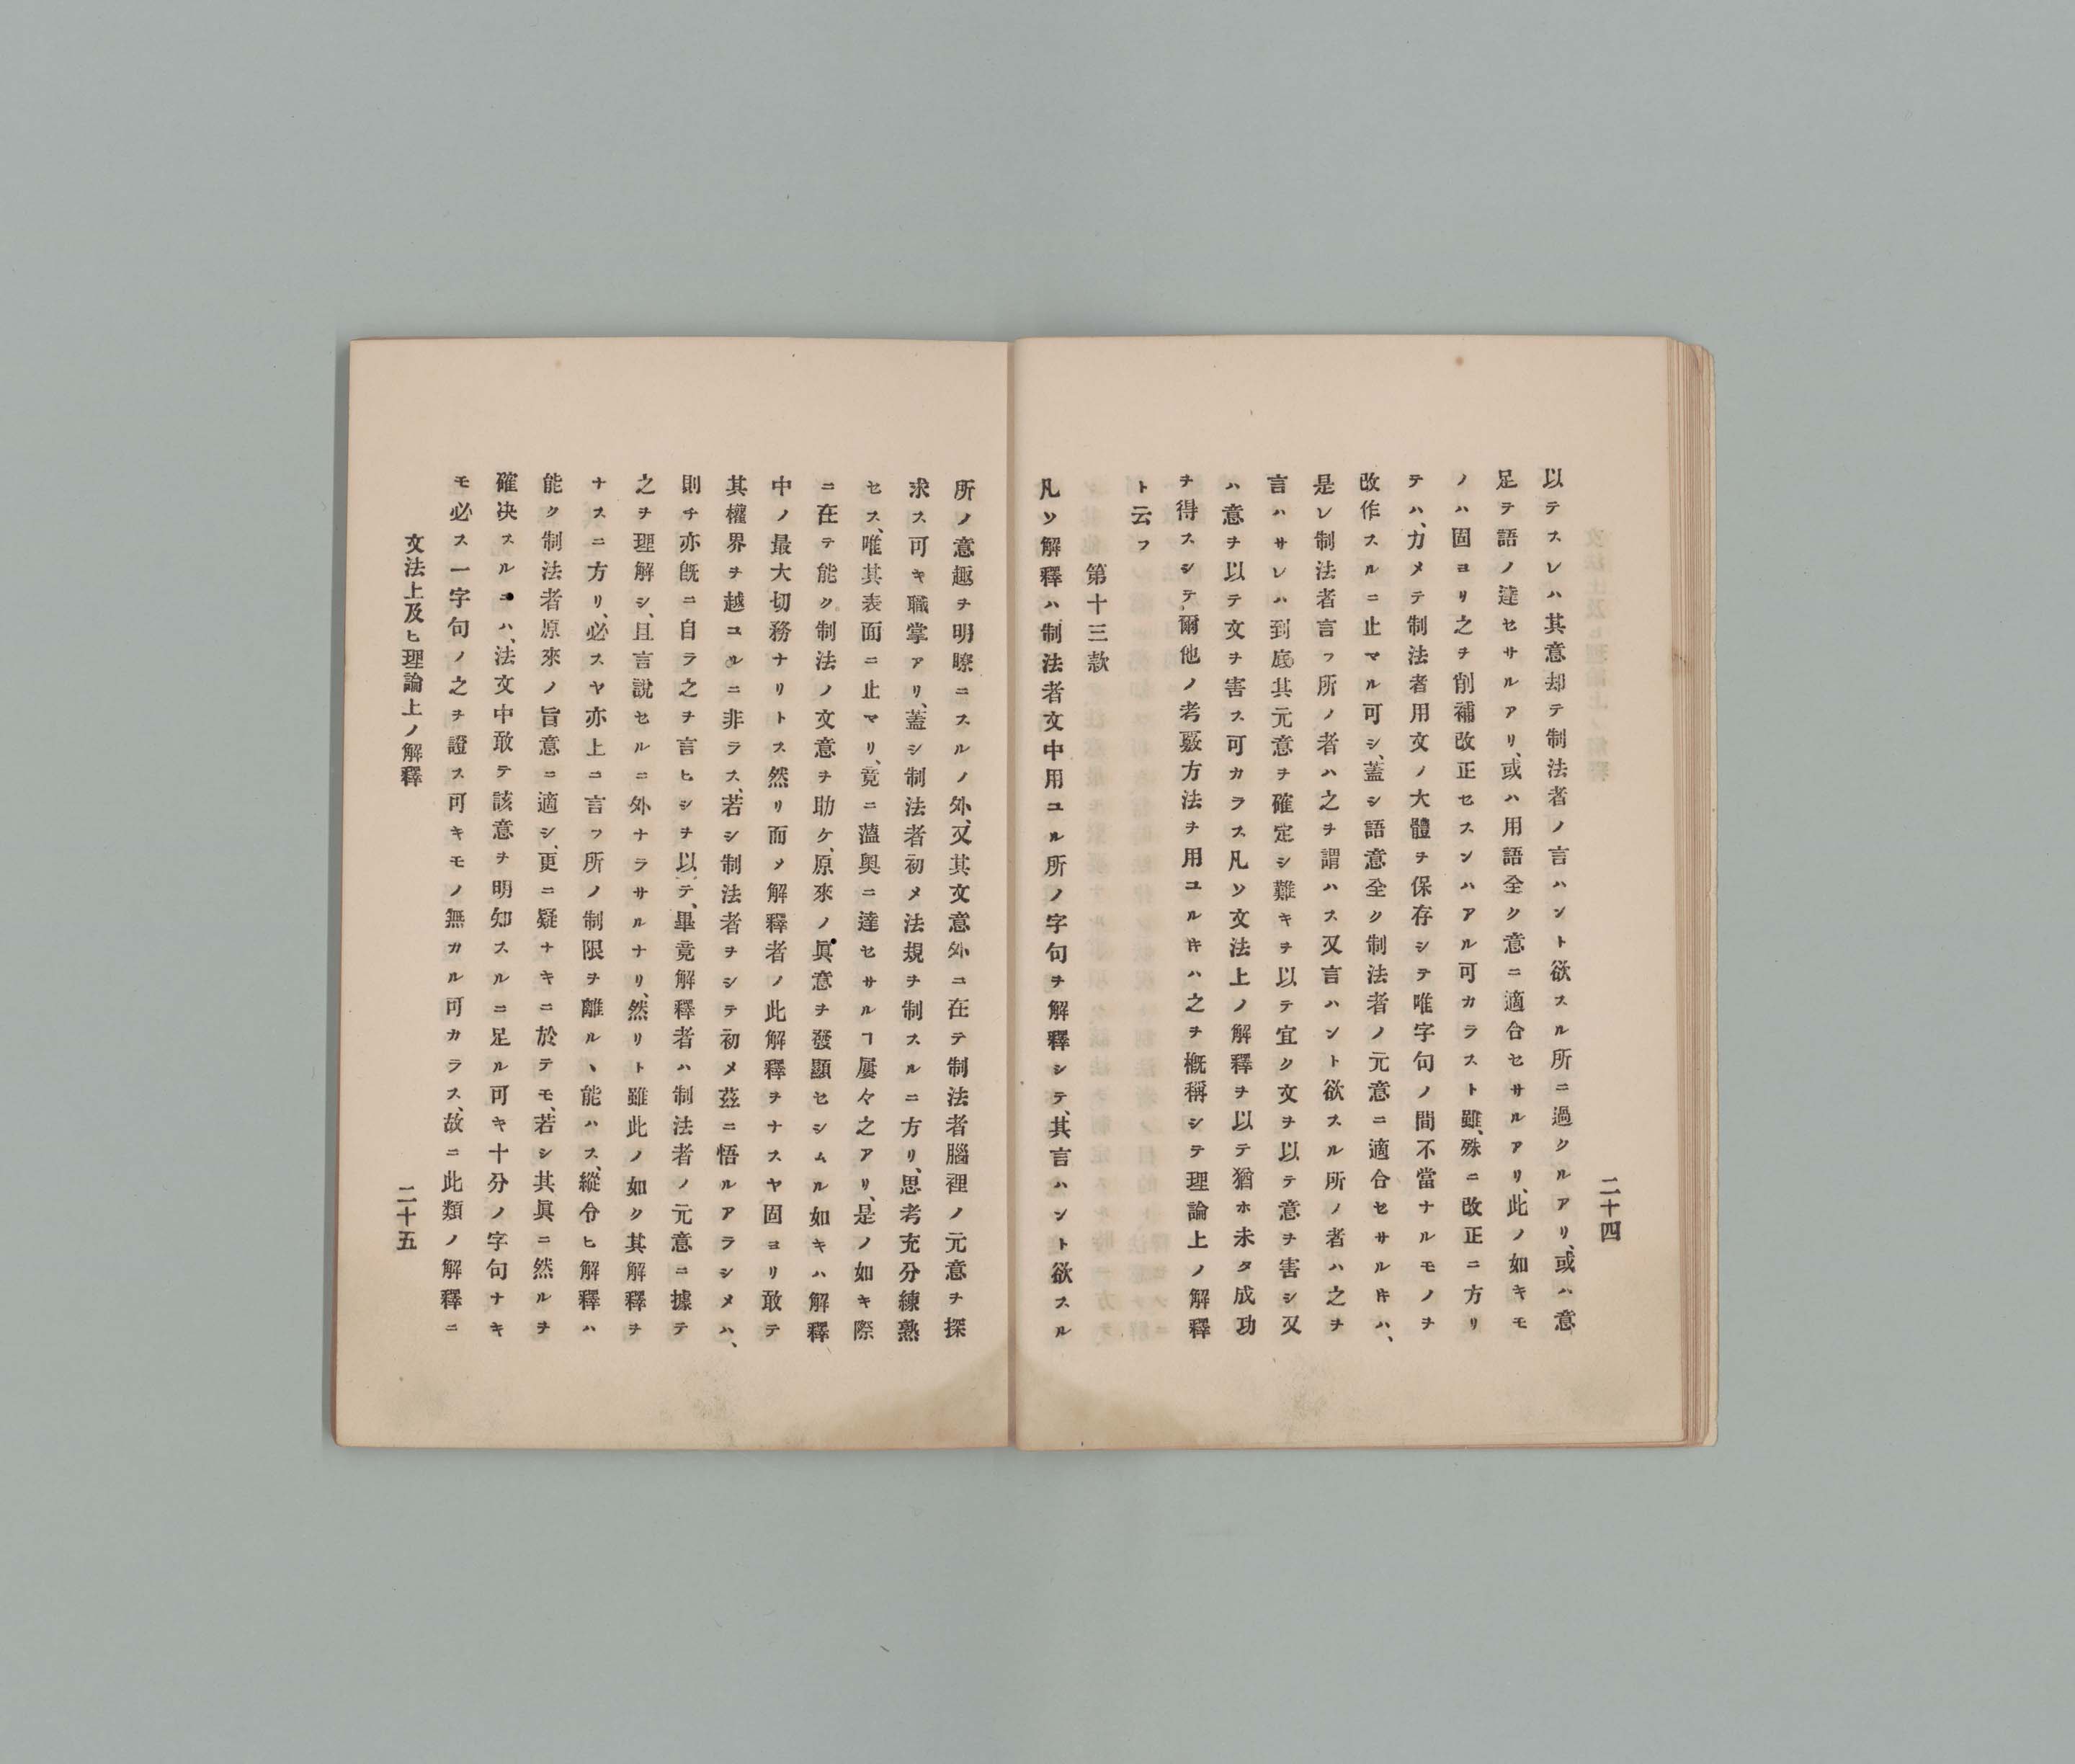 二十四
以テスレハ其意却テ制法者ノ言ハント欲スル所ニ過クルアリ、或ハ意
足ヲ語ノ達セサルアリ、或ハ用語全ク意ニ適合セサルアリ、此ノ如キモ
ノハ固ヨリ之ヲ削補改正セスンハアル可カラスト雖、殊ニ改正ニ方リ
テハ、力メテ制法者用文ノ大體ヲ保存シテ唯字句ノ間不當ナルモノヲ
改作スルニ止マル可シ、蓋シ語意全ク制法者ノ元意ニ適合セサルヰハ、
是レ制法者言フ所ノ者ハ之ヲ謂ハス又言ハント欲スル所ノ者ハ之ヲ
言ハサレハ到底其元意ヲ確定シ難キヲ以テ宜ク文ヲ以テ意ヲ害シ又
ハ意ヲ以テ文ヲ害ス可カラス凡ソ文法上ノ解釋ヲ以テ猶ホ未タ成功
ヲ得スシテ爾他ノ考覈方法ヲ用ユルヰハ之ヲ概稱シテ理論上ノ解釋
ト云フ
第十三款
凡ソ解釋ハ制法者文中用ユル所ノ字句ヲ解釋シテ、其言ハント欲スル
所ノ意趣ヲ明瞭ニスルノ外、又其文意外ニ在テ制法者腦裡ノ元意ヲ探
求ス可キ職掌アリ、蓋シ制法者初メ法規ヲ制スルニ方リ、思考充分練熟
セス、唯其表面ニ止マリ、竟ニ薀奥ニ達セサルヿ屢々之アリ、是ノ如キ際
ニ在テ能ク制法ノ文意ヲ助ケ、原來ノ眞意ヲ發顯セシムル如キハ解釋
中ノ最大切務ナリトス然リ而メ解釋者ノ此解釋ヲナスヤ固ヨリ敢テ
其權界ヲ越ユルニ非ラス、若シ制法者ヲシテ初メ茲ニ悟ルアラシメハ、
則チ亦既ニ自ラ之ヲ言ヒシヲ以テ、畢竟解釋者ハ制法者ノ元意ニ據テ
之ヲ理解シ、且言説セルニ外ナラサルナリ、然リト雖此ノ如ク其解釋ヲ
ナスニ方リ、必スヤ亦上ニ言フ所ノ制限ヲ離ルヽ能ハス、縱令ヒ解釋ハ
能ク制法者原來ノ旨意ニ適シ、更ニ疑ナキニ於テモ、若シ其眞ニ然ルヲ
確决スルニハ、法文中敢テ該意ヲ明知スルニ足ル可キ十分ノ字句ナキ
モ必ス一字句ノ之ヲ證ス可キモノ無カル可カラス、故ニ此類ノ解釋ニ
文法上及ヒ理論上ノ解釋
二十五